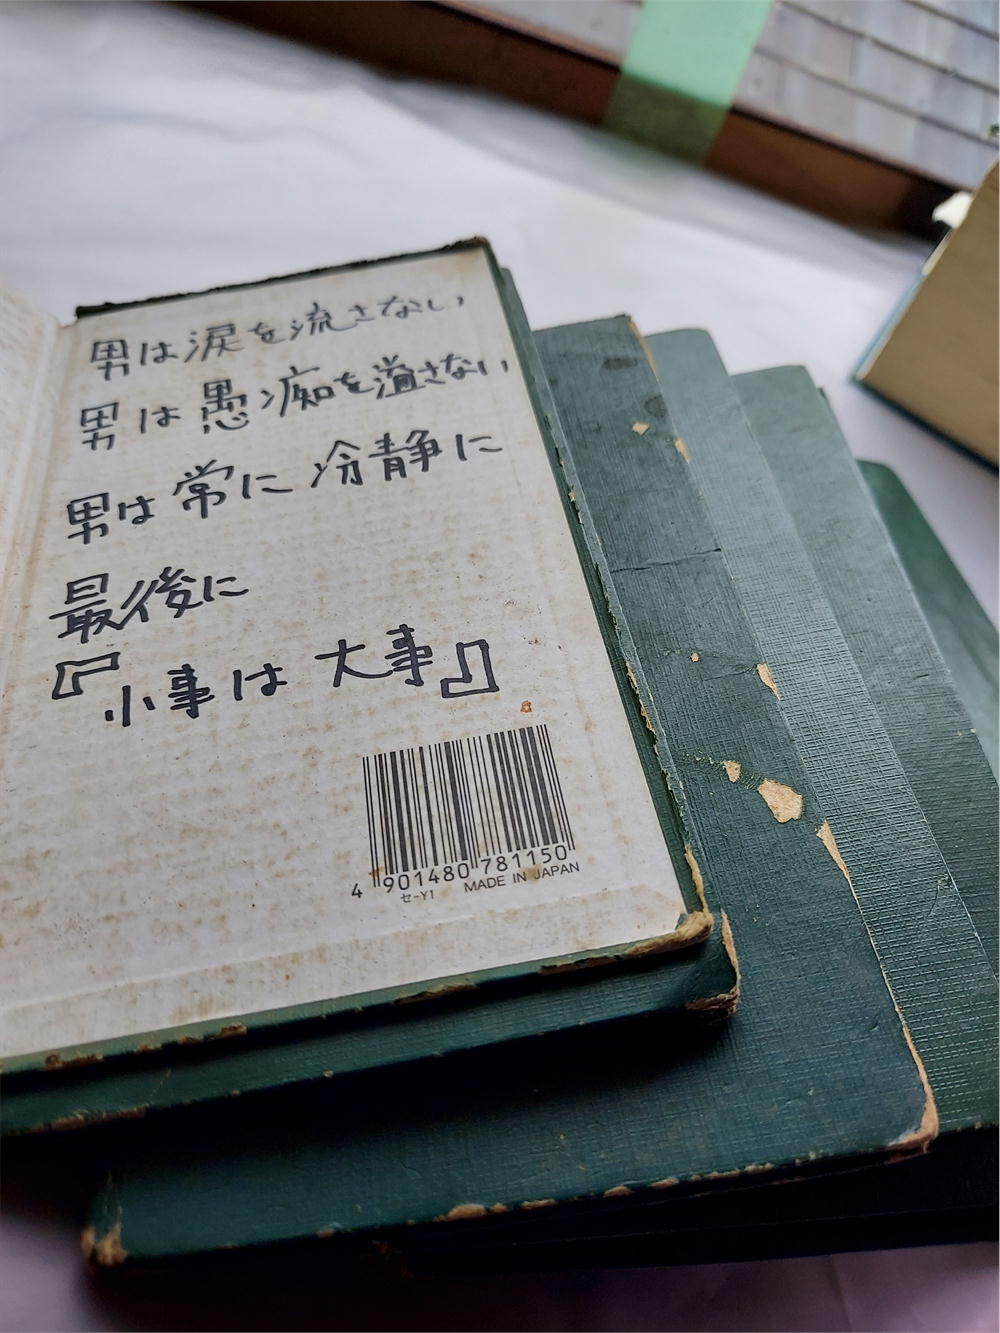 男は涙を流さない
男は愚痴を溢さない
男は常に冷静に
最後に
『小事は大事』
4 901480 781150
セ-Y1 MADE IN JAPAN